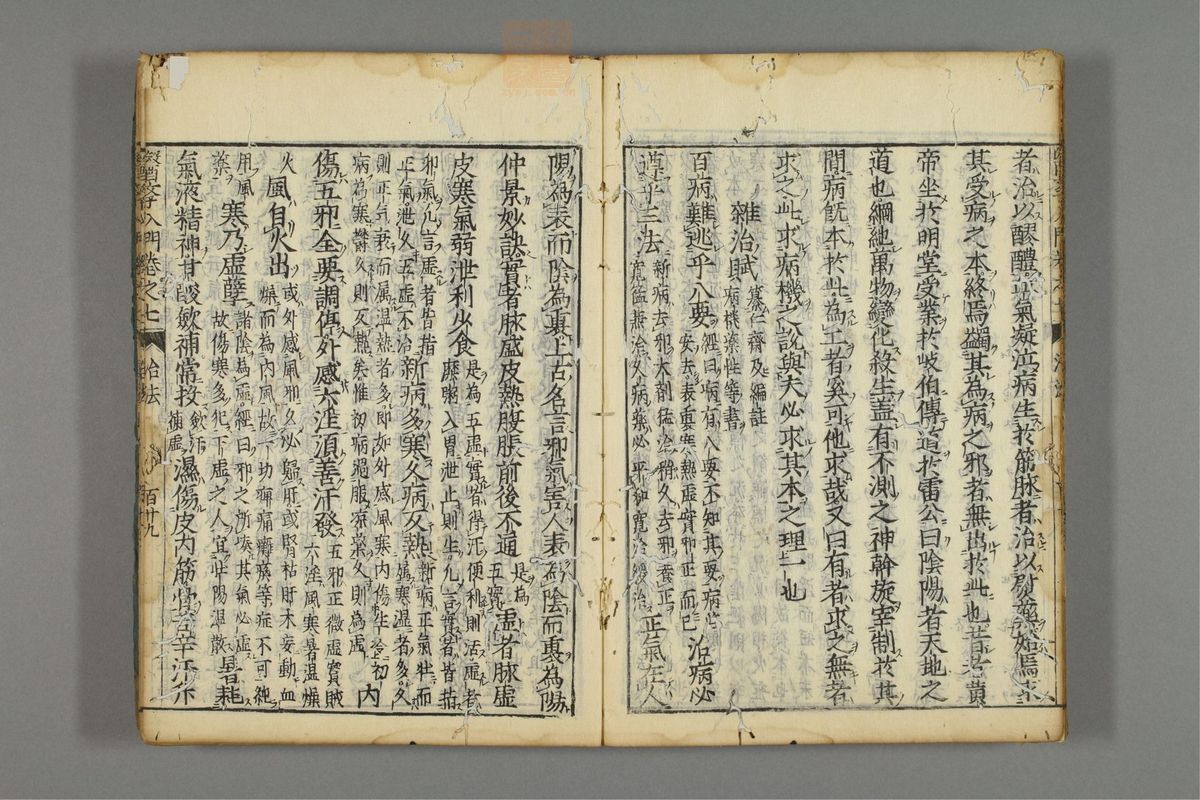 者治以醪醴出氣凝泣病生於筋脉者治以熨藥始焉求
其受病之本終焉蠲其為病之邪者無出於此也昔者黃
帝坐於明堂受業於岐伯傳道於雷公曰陰陽者天地之
道也綱紀萬物變化殺生蓋有不測之神斡旋宰制於其
間病既本於此為工者奚可他求哉又曰有者求之無者
求之此求病機之說與夫必求其本之理一也
雜治賦
纂仁齋及編註
病機藥性等書
百病難逃乎八要
經曰病有八要不知其要病
安去表裏寒熱虛實邪正而已
治病必
遵乎三法
新病去邪大劑猛治稍久去邪養正
寬猛兼治久病藥必平和寬治緩治
正氣在人
陽為表而陰為裏上古名言邪氣害人表為陰而裏為陽
仲景妙訣實者脉盛皮熱腹脹前後不通
是為
五實
虛者脉虛
皮寒氣弱泄利少食
是為五虛實者得汗便利則活虛者
糜粥入胃泄止則生九言實者皆指
邪氣九言虛者皆指
正氣泄久五虛不治
新病多寒久病反熱
新病正氣壯而
傷寒溫者多久
則正氣衰而属温熱者多即如外感風寒內傷生冷初
病為寒鬱久則反熱矣惟初病過服凉藥久則為虛
內
傷五邪全要調停外感六淫須善汗發
五邪正微虛實賊
六淫風寒暑濕燥
火
風自火出
或外感風邪久必歸肝或腎枯肝木妄動血
燥而為內風故一切癬痛癢痿等症不可純
用風
藥
寒乃虛孽
諸陰為寒經曰邪之所凑其氣必虛
故傷寒多犯下虛之人宜壯陽温散
暑耗
氣液精神甘酸斂補常投
補虛
濕傷皮肉筋骨苦辛汗
醫學入門卷之七
治法
百廿九